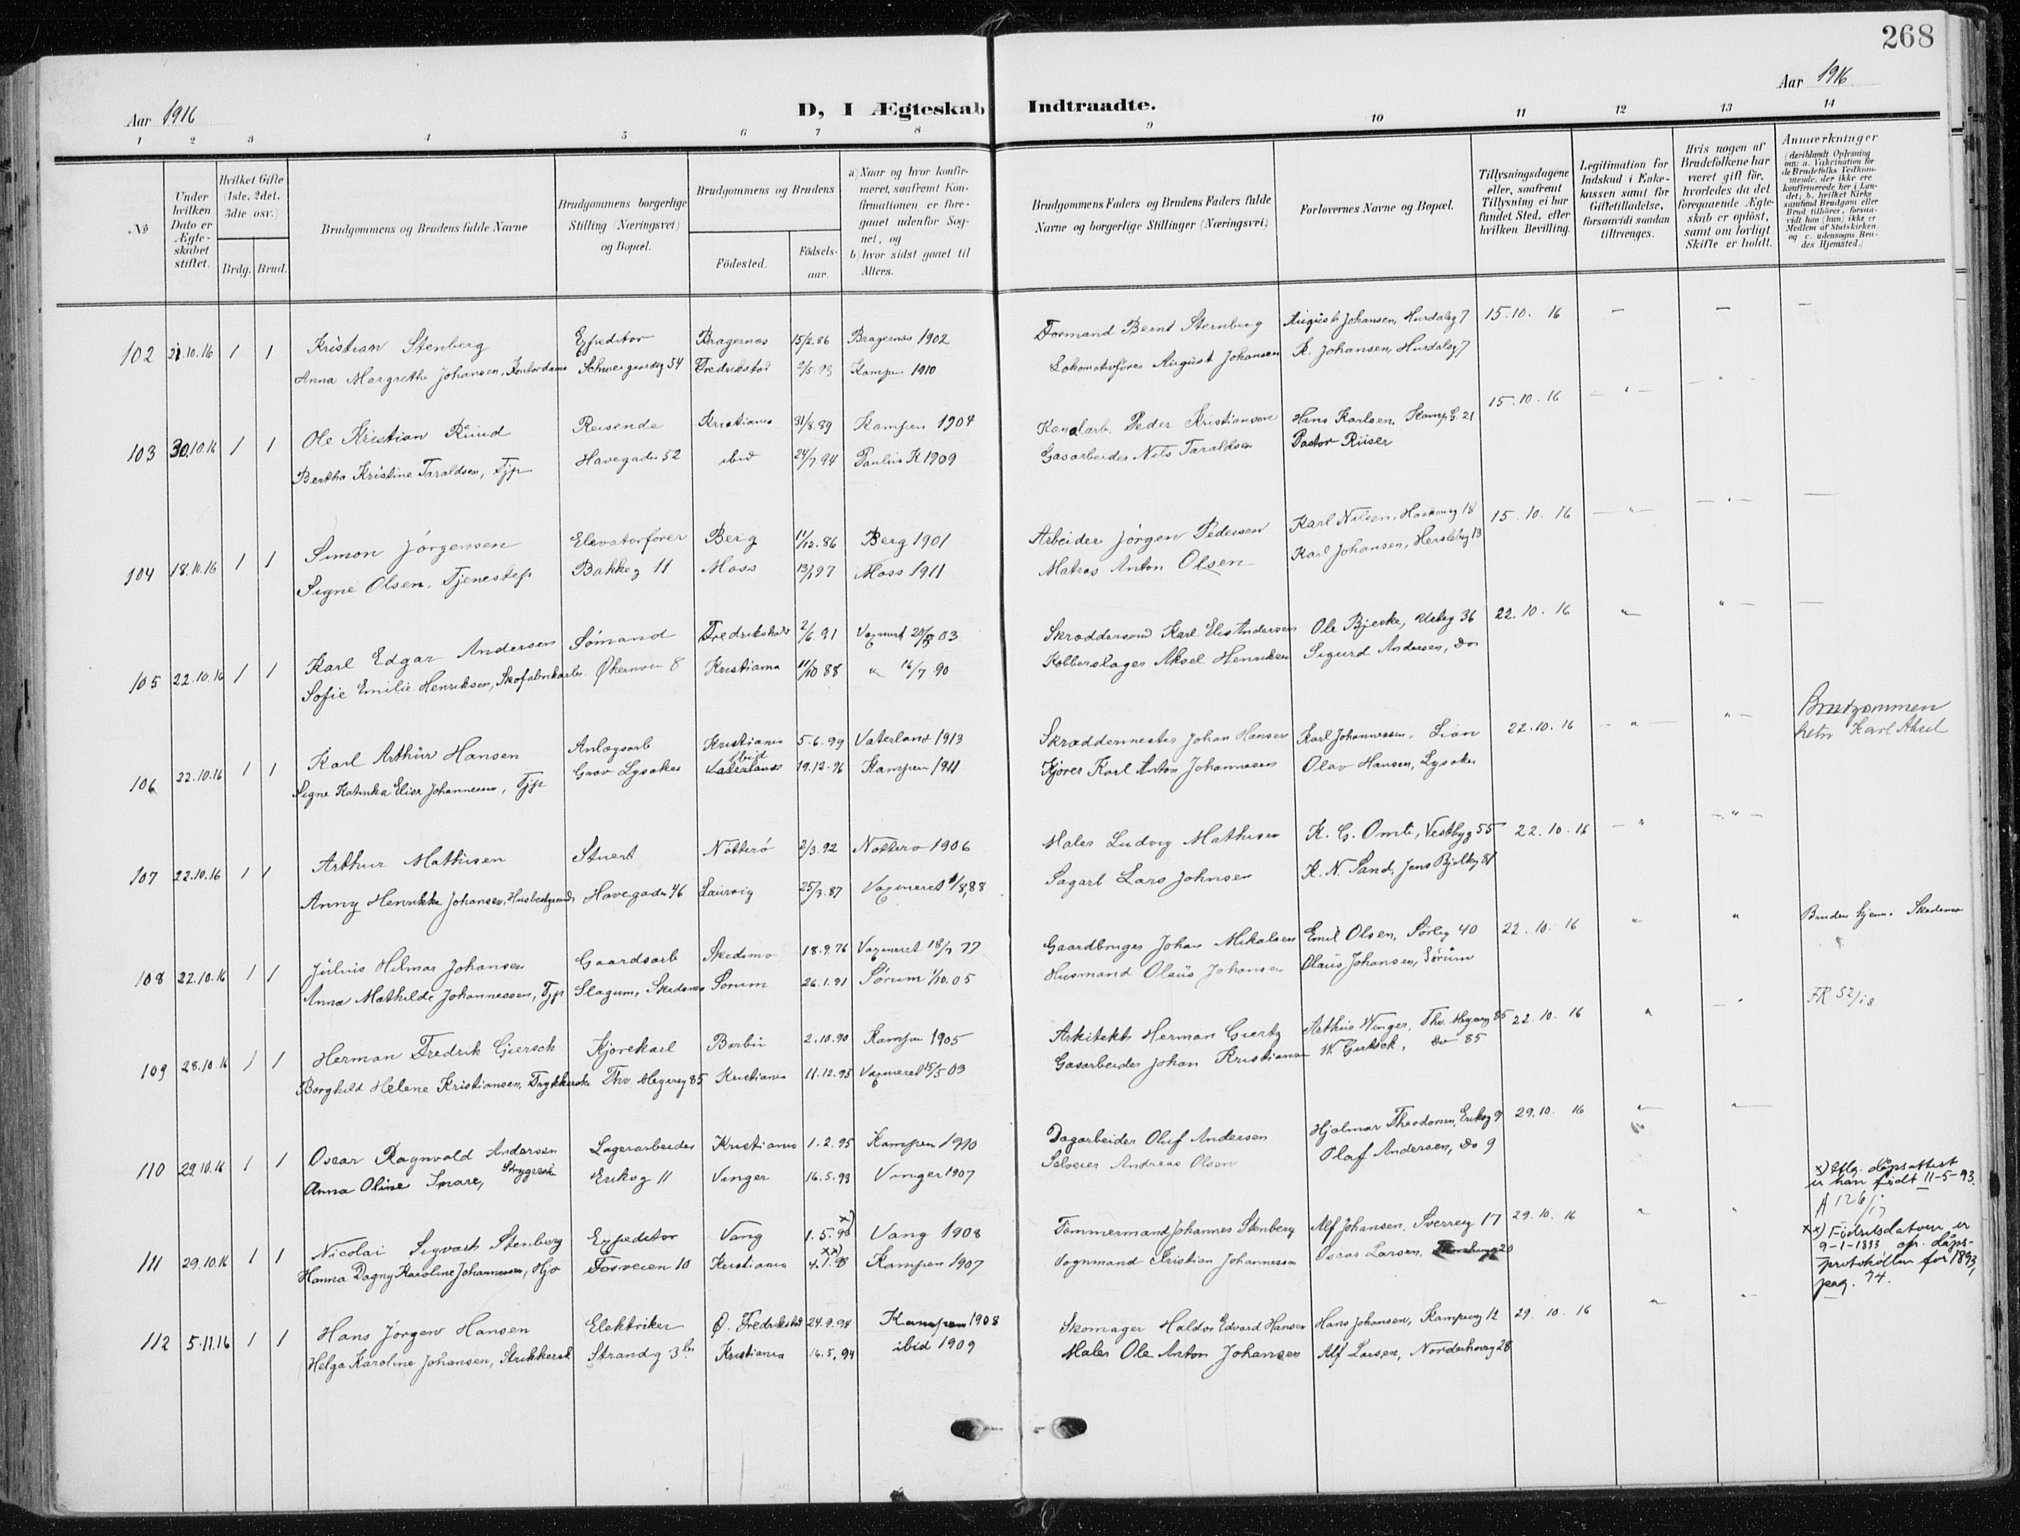 268
Aar 1916
D, I Ægteskab Indtraadte.
Aar 1916
1 2 3 4 5 6 7 8 9 10 11 12 13 14
No
Under hvilken Dato er Ægteskabet stiftet.
Hvilket Gifte (1ste, 2det, 3die osv.)
Brdg. Brud.
Brudgommens og Brudens fulde Navne
Brudgommens borgerlige Stilling (Næringsvei) og Bopæl.
Brudgommens og Brudens
Fødested. Fødsels-aar.
a) Naar og hvor konfirmeret, saafremt Konfirmationen er foregaaet udenfor Sognet, og
b) hvor sidst gaaet til Alters.
Brudgommens Faders og Brudens Faders fulde Navne og borgerlige Stillinger (Næringsvei)
Forlovernes Navne og Bopæl.
Tillysningsdagene eller, saafremt Tillysning ei har fundet Sted, efter hvilken Bevilling.
Legitimation for Indskud i Enkekassen samt for Giftetilladelse, forsaavidt saadan tiltrænges.
Hvis nogen af Brudefolkene har været gift før, hvorledes da det foregaaende Ægteskab er opløst, samt om lovligt Skifte er holdt.
Anmærkninger (deriblandt Oplysning om: a. Vakcination for de Brudefolks Vedkommende, der ikke ere konfirmerede her i Landet; b. hvilket Kirkesamfund Brudgom eller Brud tilhører, forsaavidt han (hun) ikke er Medlem af Statskirken, og c. udensogns Brudes Hjemsted.)
102 21.10.16 1 1 Kristian Stenberg Expeditor Bragernes 15/2.86 Bragernes 1902 Formand Bernt Stenberg August Johansen, Hurdalsg 7 15.10.16
Anna Margrethe Johansen, Kontordame Schweigaardsg 54 Fredrikstad 2/5.93 Kampen 1910 Lokomotivfører August Johansen K. Johansen, Hurdalsg 7
103 30.10.16 1 1 Ole Kristian Ruud Reisende Kristiania 31/8.89 Kampen 1904 Kanalarb. Peder Kristiansen Hans Karlsen, Kamp.G. 21 15.10.16
Bertha Kristine Taraldsen, Tjp Havegaden 52 ibid 24/7 94 Paulus K 1909 Gasarbeider Nils Taraldsen Pastor Riiser
104 18.10.16 1 1 Simon Jørgensen Elevatorfører Berg 11/12.86 Berg 1901 Arbeider Jørgen Pedersen Karl Nilsen, 18 15.10.16
Signe Olsen, Tjenestep Bakkeg 11 Moss 13/1 97 Moss 1911 Matros Anton Olsen Karl Johansen, Herslebsg 13
105 22.10.16 1 1 Karl Edgar Andersen Sømand Fredrikshald 2/6 91 03 Skræddersvend Karl Elis Andersen Ole Bjerke, 36 22.10.16
Sofie Emilie Henriksen, Skofabrikarb. Økernvei 8 Kristiania 11/10 88 " 16/7 90 Kobberslager Aksel Henriksen Sigurd Andersen, do
106 22.10.16 1 1 Karl Arthur Hansen Anlægsarb Kristiania 5.6.99 Vaterland 1913 Skræddermester Johan Hansen Karl Johannessen, Lian 22.10.16 Brudgommen heter Karl Aksel
Signe Katinka Elise Johannessen, Tjp Grav Lysaker Vaterlands 19.12.96 Kampen 1911 Kjører Karl Anton Johannesen Olav Hansen, Lysaker
107 22.10.16 1 1 Arthur Mathisen Stuert Nøtterø 2/3.92 Nøtterø 1906 Maler Ludvig Mathisen K. G. Omti, Vestbyg 55 22.10.16
Anny Henrikke Johansen, Husbestyrerinde Havegaden 46 Laurvig 25/3.87 Vaxineret 1/8,88 Sagarb Lars Johnsen K. N. Sand, Jens Bjelkesg 51
108 22.10.16 1 1 Julius Hilmar Johansen Gaardsarb Skedsmo 18.9.76 Vaxineret 18/7 77 Gaardbruger Johan Mikalsen Emil Olsen, Sørlig 40 22.10.16 Bruden hjem. Skedsmo
Anna Mathilde Johannessen, Tjp Slagum, Skedsmo Sørum 26.1.91 Sørum 1/10.05 Husmand Olaüs Johansen Olaüs Johansen, Sørum
FR 52/18
109 28.10.16 1 1 Herman Fredrik Giersch Kjørekarl 2.10.90 Kampen 1905 Arkitekt Herman Giertz Arthur Winger, Thv. Meyersg 85 22.10.16
Borghild Helene Kristiansen, Trykkerske Thv. Meyersg 85 Kristiania 11.12.95 Vaxineret 15/5 03 Gasarbeider Johan Kristiansen W. Girtsch, do 85
110 29.10.16 1 1 Oscar Ragnvald Andersen Lagerarbeider Kristiania 1.2.95 Kampen 1910 Dagarbeider Oluf Andersen Hjalmar Theodorsen, Eriksg 9 29.10.16
Anna Oline Snare, Strygersk Eriksg 11 Vinger 16.5.93 Vinger 1907 Selveier Andreas Olsen Olaf Andersen, do 9
x) Iflg. dåpsattest er han født 11-5-93. A 126/17
111 29.10.16 1 1 Nicolai Sigvart Stenberg Expeditor Vang 1.5.98 x) Vang 1908 Tømmermand Johannes Stenberg Alf Johansen, Sverresg 17 29.10.16
Hanna Dagny Karoline Johannessen, Hjv Fossveien 10 Kristiania 4.7.98 xx) Kampen 1907 Vognmand Kristian Johannessen Oscar Larsen, 20
xx) Fødselsdatoen er 9-1-1893 efr. dåpsprotokollen for 1893, pag. 74.
112 5.11.16 1 1 Hans Jørgen Hansen Elektriker Ø. Fredrikstad 24.9.94 Kampen 1908 Skomager Haldor Edvard Hansen Hans Johansen, Kampensg 12 29.10.16
Helga Karoline Johansen, Strikkersk Strandg 3 b Kristiania 16.5.94 ibid 1909 Maler Ole Anton Johansen Alf Larsen, Norderhovsg 28